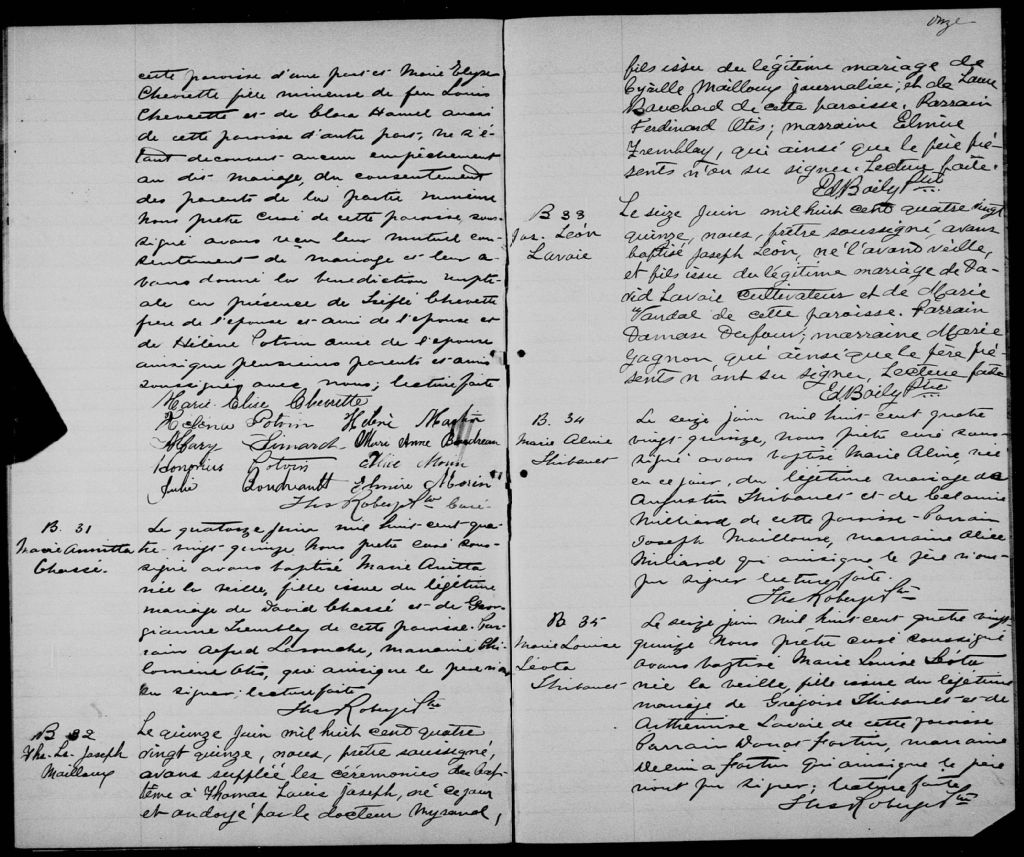 cette paroisse d'une part et Marie Elyse
Chevrette fille mineure de feu Louis
Chevrette et de Clara Hamel aussi
de cette paroisse d'autre part; ne s'é-
tant decouvert aucun empêchement
au dit mariage, du consentement
des parents de la partie mineure
Nous prêtre curé de cette paroisse sous-
signé avons reçu leur mutuel con-
sentement de mariage et leur a-
vons donné la benediction nupti-
ale en présence de Chevrette
frere de l'epouse et ami de l'epouse et
de Hélène Potvin amie de l'epouse
ainsi que plusieurs parents et amis
soussignés avec nous; lecture faite
Marie Elise Chevrette
Helena Potvin Helène Martin
Mary Simard Marie Anne Boudreau
Honorius Potvin Alice Morin
Julie Boudreault Elmire Morin
Ths Roberge Ptre Curé
B. 31
Marie Annitta
Chassé.
Le quatorze juin mil huit cent qua-
tre-vingt-quinze Nous pretre curé sous-
signé avons baptisé Marie Anitta
née la veille, fille issue du légitime
mariage de David Chassé et de Geor-
gianne Tremblay de cette paroisse. Par-
rain Alfred Larouche, marraine Phi-
lomène Otis, qui ainsi que le pere n'on
pu signer; lecture faite
Ths Roberge Ptre
B 32
Ths-Ls-Joseph
Mailloux
Le quinze juin mil huit cent quatre
vingt quinze, nous, prêtre soussigné,
avons suppléé les cérémonies du bap-
tême à Thomas Louis Joseph, né ce jour
et ondoyé par le docteur Myrand,
Onze
fils issu du légitime mariage de
Cyrille Mailloux journalier; et de Laure
Bouchard de cette paroisse. Parrain
Ferdinand Otis; marraine Elmire
Tremblay, qui ainsi que le père pré-
sents n'on su signer. Lecture faite.
Ed Boily Ptre
B 33
Jos. Léon
Lavoie
Le seize Juin mil huit cent quatre vingt
quinze, nous, prêtre soussigné, avons
baptisé Joseph Léon, né l'avant veille,
et fils issu du légitime mariage de Da-
vid Lavoie cultivateur et de Marie
Vandal de cette paroisse. Parrain
Damase Dufour; marraine Marie
Gagnon qui ainsi que le père pré-
sents n'ont su signer. Lecture faite
Ed Boily Ptre
B. 34
Marie Aline
Thibault
Le seize juin mil huit cent quatre
vingt-quinze, nous pretre curé sous-
signé avons baptisé Marie Aline, née
en ce jour, du légitime mariage de
Augustin Thibault et de Mélanie
Milliard de cette paroisse - Parrain
Joseph Mailloux, marraine Alice
Miliard qui ainsi que le père n'ont
pu signer lecture faite.
Ths Roberge Ptre
B 35
Marie Louise
Léota
Thibault
Le seize juin mil huit cent quatre vingt
quinze Nous pretre curé soussigné
avons baptisé Marie Louise Léota
née la veille, fille issue du légitime
mariage de Grégoire Thibault et de
Arthémise Lavoie de cette paroisse
Parrain Donat Fortin, marraine
Delima Fortin qui ainsi que le père
n'ont pu signer; lecture faite
Ths Roberge Ptre